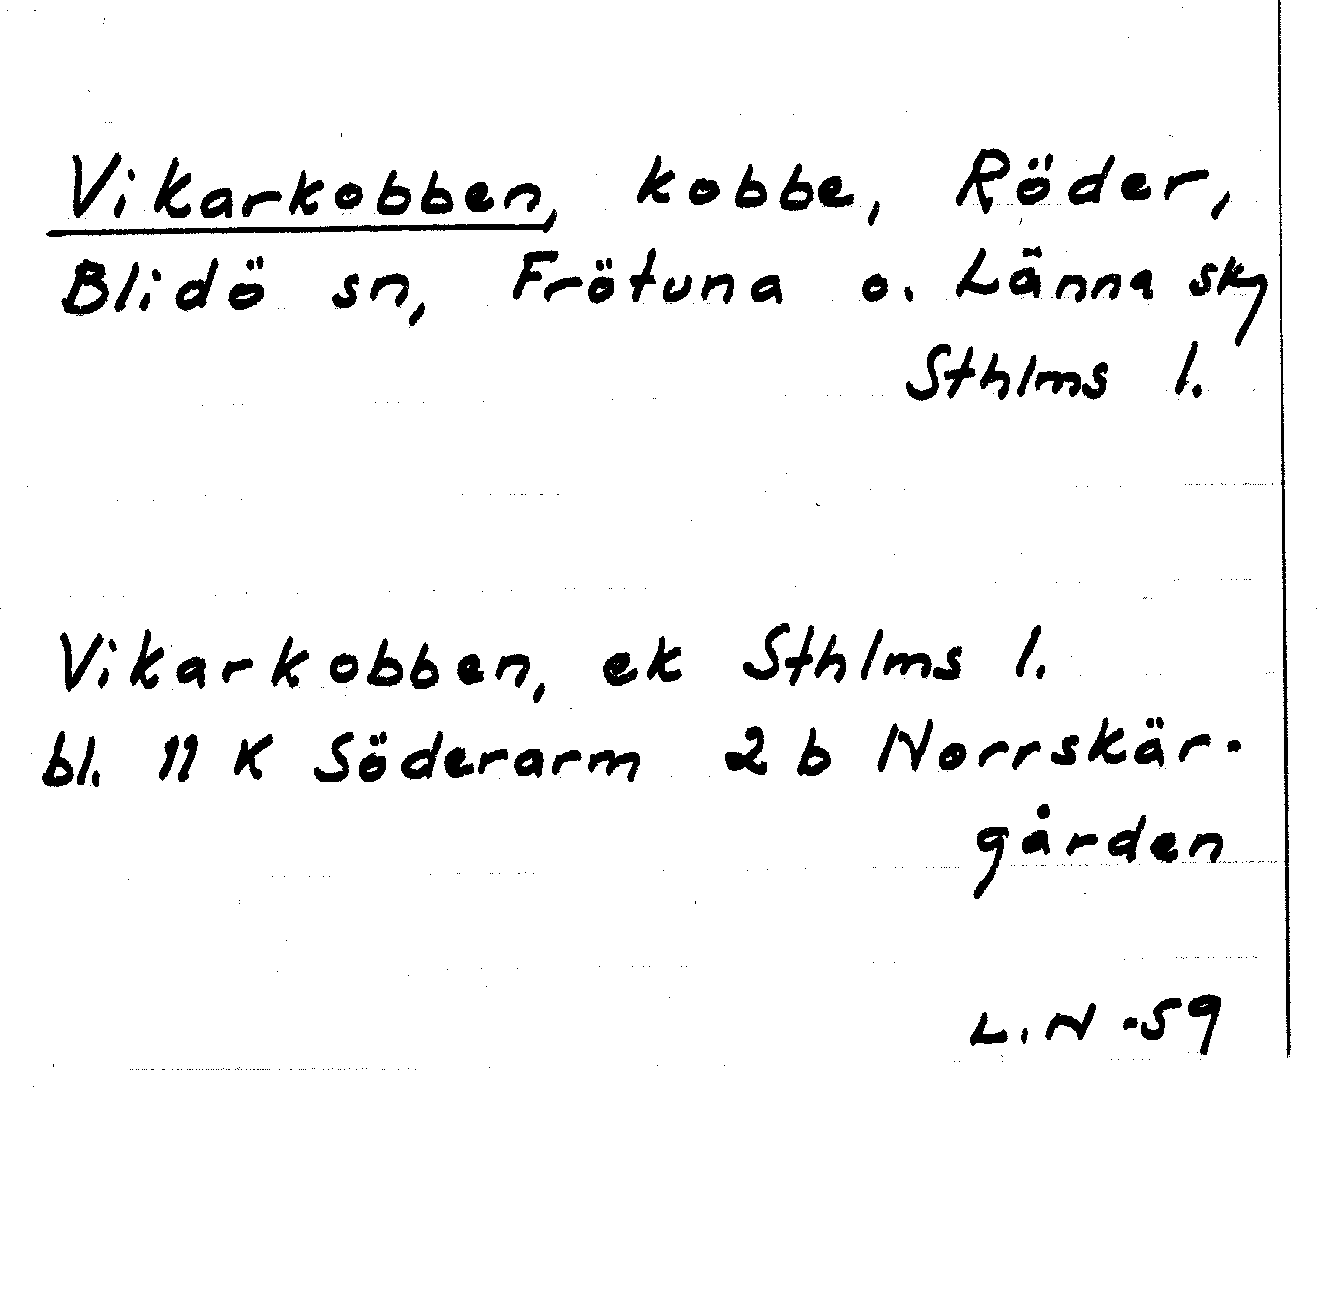 Vikarkobben, kobbe, Röder,
Blidö sn, Frötuna o. Länna skg
Sthlms l.
Vikarkobben, ek Sthlms l.
bl. 11 K Söderarm 2 b Norrskär-
gården
L.N -59